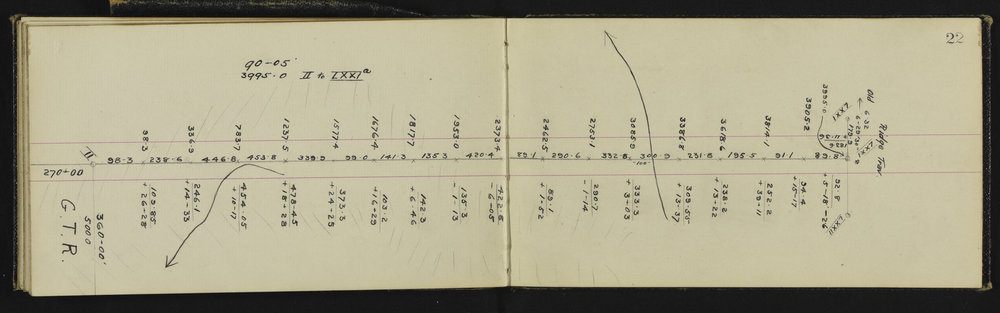 22
90-05'
3995.0 II to LXXIª
38.3
336.9
783.7
1237.5
1577.4
1676.4
1817.7
1953.0
2373.4
2462.5
2753.1
3085.9
3386.8
3618.6
3814.1
3905.2
3995.0
LXXI
Old
6.32
Ridge Trav.
II
98.3 238.6 446.8 453.8 339.9 99.0 141.3 135.3 420.4 89.1 290.6 332.8 300.9 231.8 195.5 91.1 89.8
-100-
270-00
109.85
+ 26-28
246.1
+ 14-33
454.05
+ 10-17
478.45
+ 18-28
373.3
+ 24-25
103.2
+ 16-29
142.3
+ 6-46
135.3
- 1-13
422.8
- 6-05
89.1
+ 1-52
290.7
- 1-14
333.3
+ 3-03
309.55
+ 13-37
238.2
+ 13-22
252.2
+ 39-11
94.4
+ 15-17
LXXII
360-00'
5000
G. T. R.